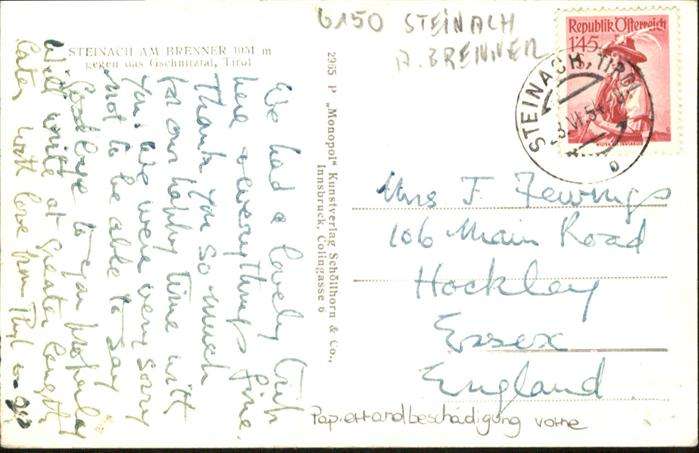 6150 STEINACH
A. BRENNER
STEINACH AM BRENNER 1051 m
gegen das Gschnitztal, Tirol
Republik Österreich
1'45
STEINACH, TIROL
We had a lovely trip
here & everythings fine.
Thank you so much
for our happy time with
you. We were very sorry
not to be able to say
Goodbye to you properly
Will write at greater length
later with love from
2965 P „Monopol" Kunstverlag Schöllhorn & Co.,
Innsbruck, Colingasse 6
Mrs F. Fewings
106 Main Road
Hockley
Essex
England.
Papierrandbeschädigung vorne